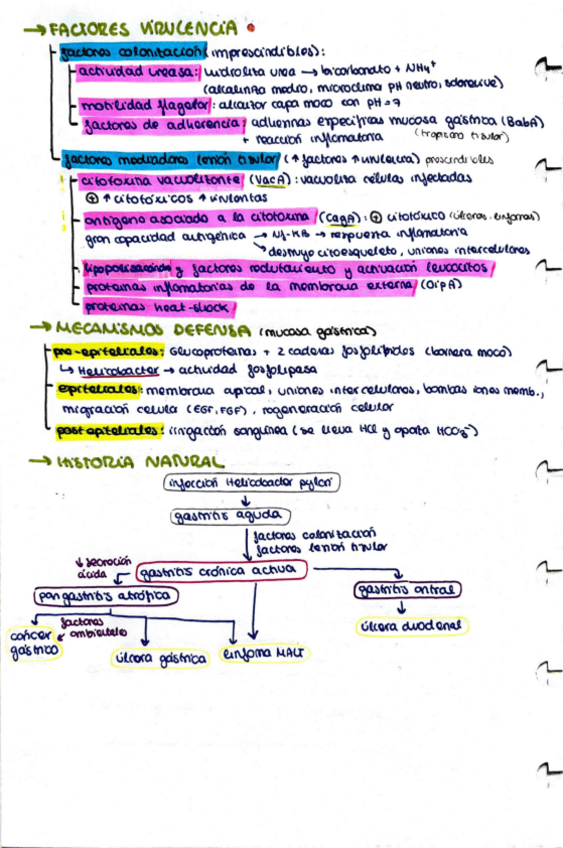 → FACTORES VIRULENCIA
factores colonización (imprescindibles):
actividad ureasa: hidroliza urea → bicarbonato + NH4+
(alcaliniza medio, microclima pH neutro, sobrevive)
motilidad flagelar: alcanzar capa moco con pH=7
factores de adherencia: adhesinas específicas mucosa gástrica (BabA)
+ reacción inflamatoria (tropismo tisular)
factores mediadores lesión tisular (↑ factores ↑ virulencia) prescindibles
citotoxina vacuolizante (VacA): vacuoliza células infectadas
⊕ ↑ citotóxicos ↑ virulentas
antígeno asociado a la citotoxina (CagA): ⊕ citotóxico (úlceras, linfomas)
gran capacidad antigénica → NF-KB → respuesta inflamatoria
↘ destruye citoesqueleto, uniones intercelulares
lipopolisacárido y factores reclutamiento y activación leucocitos
proteínas inflamatorias de la membrana externa (OipA)
proteínas heat-shock
→ MECANISMOS DEFENSA (mucosa gástrica)
pre-epiteliales: Glucoproteínas + 2 cadenas fosfolípidos (barrera moco)
↳ Helicobacter → actividad fosfolipasa
epiteliales: membrana apical, uniones intercelulares, bombas iones memb.,
migración celular (EGF, FGF), regeneración celular
postepiteliales: irrigación sanguínea (se lleva HCl y aporta HCO3-)
→ HISTORIA NATURAL
infección Helicobacter pylori
gastritis aguda
factores colonización
factores lesión tisular
↓ secreción
ácida
gastritis crónica activa
pangastritis atrófica
gastritis antral
factores
ambientales
cáncer
gástrico
úlcera gástrica
linfoma MALT
úlcera duodenal